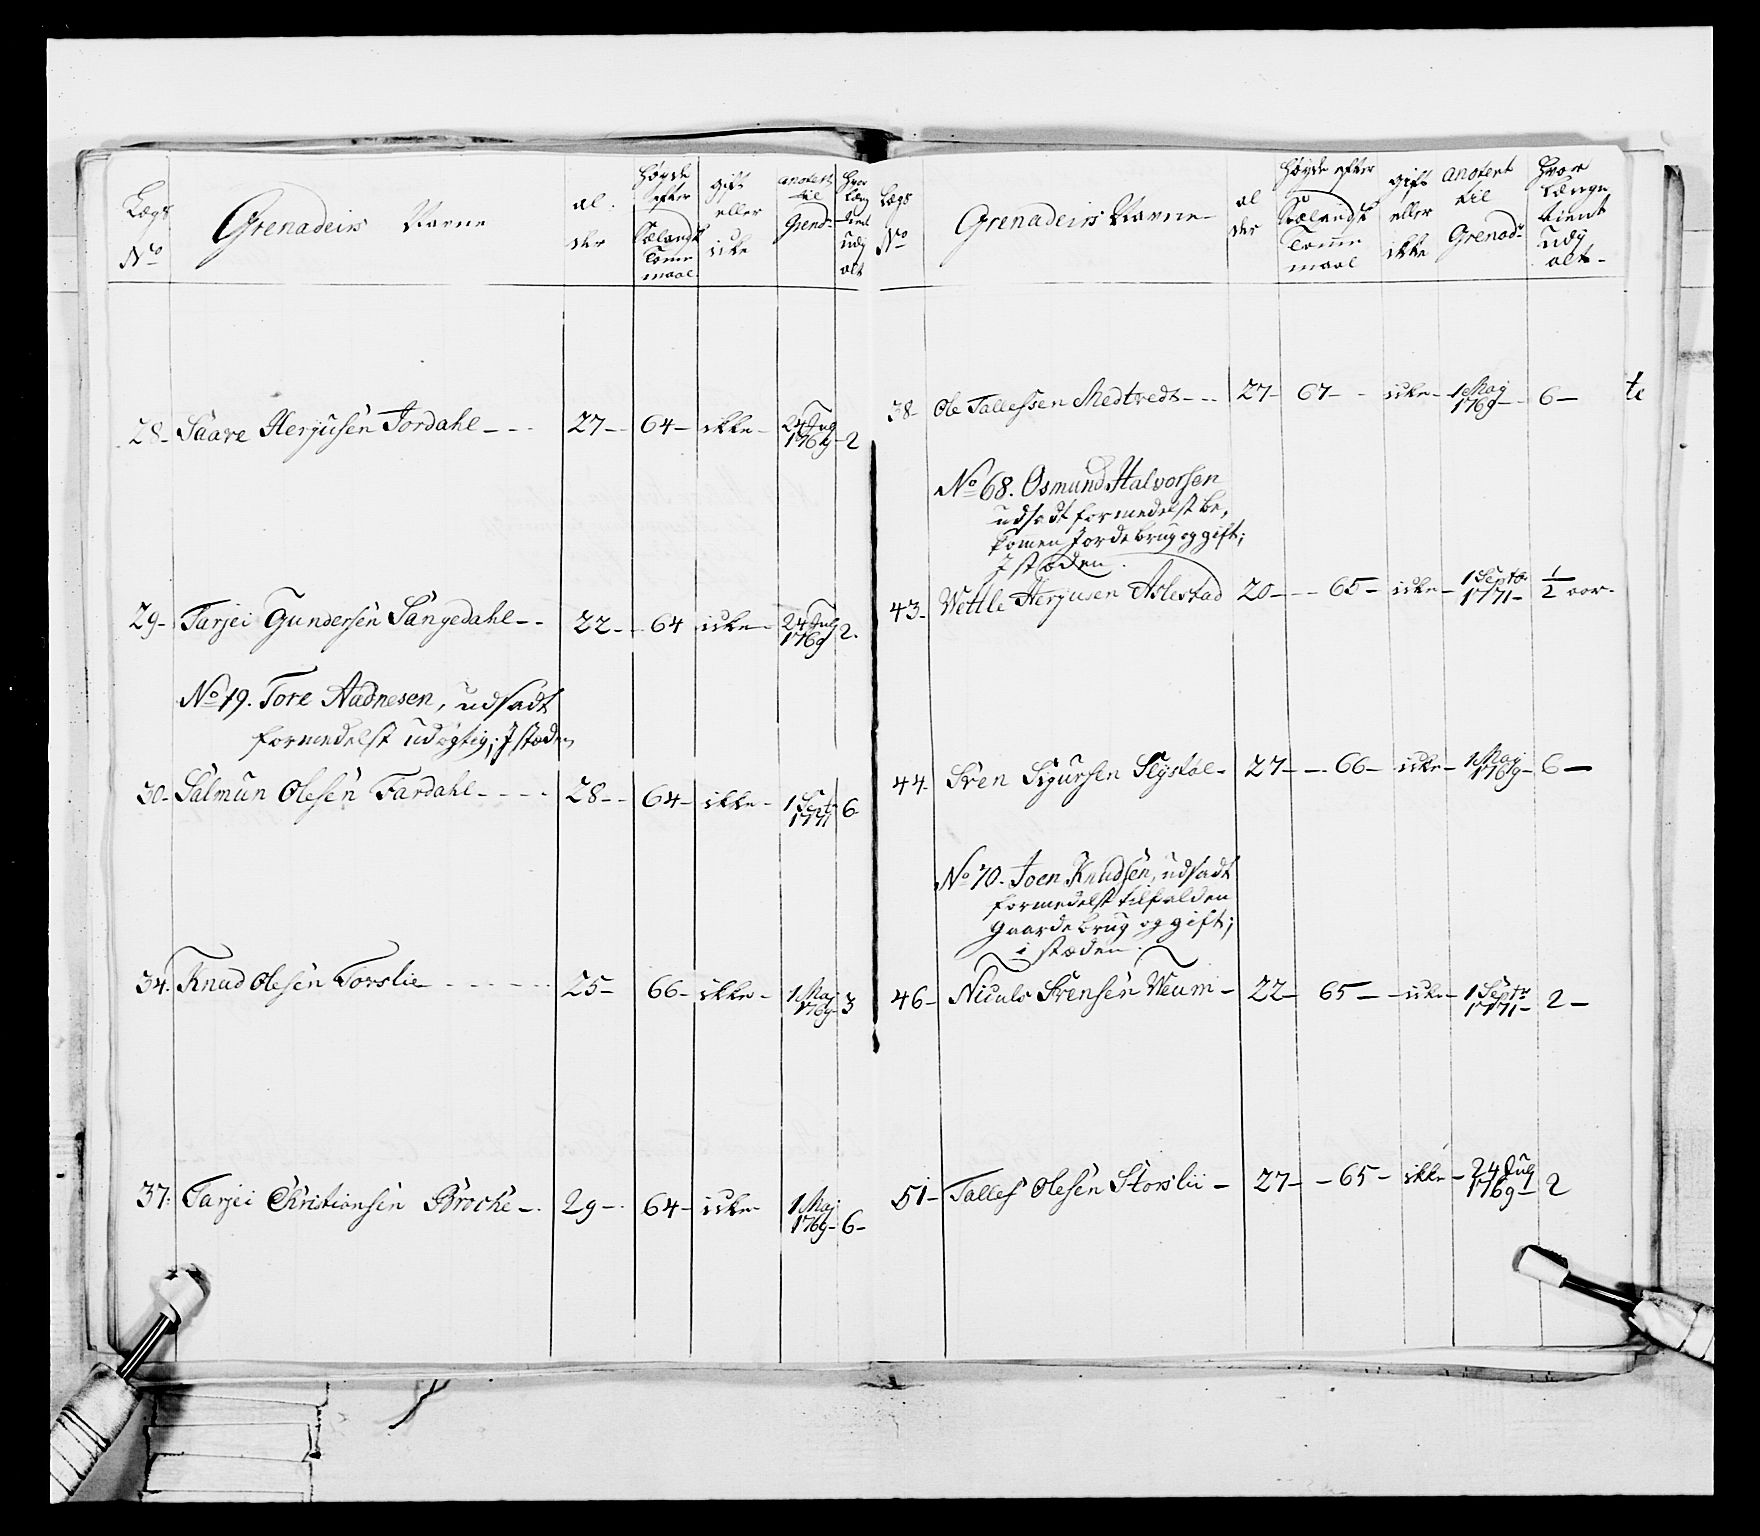 Lægs No
Grenadeirs Navne
al der
Høyde efter Sælandsk Tomme maal
gift eller icke
anotert til Grend
Hvor læng tient udj alt
28- Saave Herjusen Jordahl - - - 27 - - 64 - ikke - 24 Jul 1769 - 2
29- Tarjei Gundersen Sangedahl - - 22 - - 64 icke - 24 Jul 1769 2.
No 19. Tore Aadnesen, udsadt
formedelst udøgtig; J stæden
30- Salmun Olesen Fardahl - - - - 28 - - 64 - ikke - 1 Sept 1771 6
34. Knud Olesen Torslie - - - - - - 25 - 66 - ikke - 1 Maj 1769 - 3
37. Tarjei Christiansen Broche - . 29 - - 64 - icke - 1 Maj 1769 - 6 -
Lægs No
Grenadeirs Navne
al der
Høyde efter Sælandsk Tomme maal
gift eller ikke
anotert til Grenad:
Hvor længe tient udj alt -
38- Ole Tallefssen Medtveds - - - 27 - 67 - - icke - 1 Maj 1769 - - 6 - te
No 68. Osmund Halvorsen
udsadt formedelst be-
komen Jordebrug og gift;
J stæden.
43- Wettle Herjusen Aslestad 20 - - - 65 - icke - 1 Septbr 1771 - 1/2 aar -
44- Sven Sigursen 27 - - - 66 - icke - 1 Maj 1769 - 6 -
No 70. Joen Knudsen, udsadt
formedelst tilfalden
gaardebrug og gift;
i stæden.
46- Niculs Svensen Weum - 22 - 65 - - icke - 1 Septr 1771 - 2 -
51- Tallef Olesen Storslii - 27 - - 65 - ikke - 24 Jul 1769 - 2